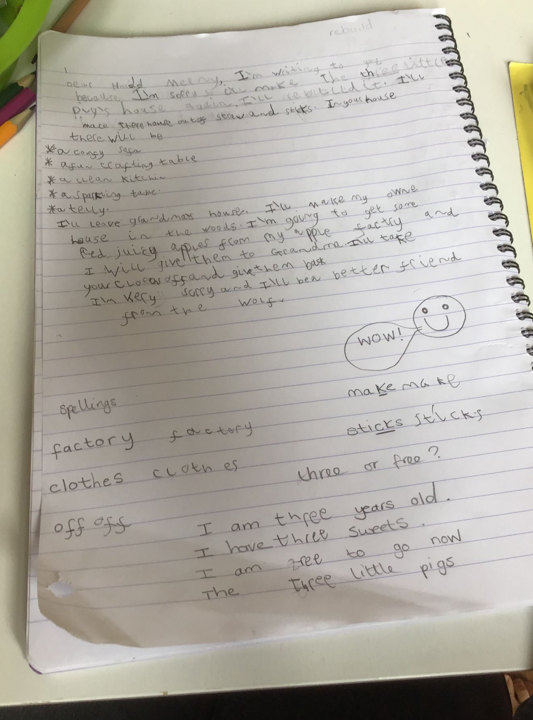 rebuild
Dear Hood Meeny, I'm writing to
because I'm sorry I'll make The three little
pugs house again. I'll rebuild it. I'll
make there house out of straw and sticks. In your house
there will be
*a comfy sofa
*a fun crafting table
*a clean kitchin
*a
*a telly.
I'll leave grandmas house. I'll make my owne
house in the woods. I'm going to get some
Red juicy apples from my apple factry and
I will give them to Grandma. I'll take
your off and give them back
I'm very sorry and I'll be a better friend
from the wolf.
WOW!
Spellings
make make
factory factory
sticks sticks
clothes clothes
three or free?
off off
I am three years old.
I have three sweets.
I am free to go now
The three little pigs